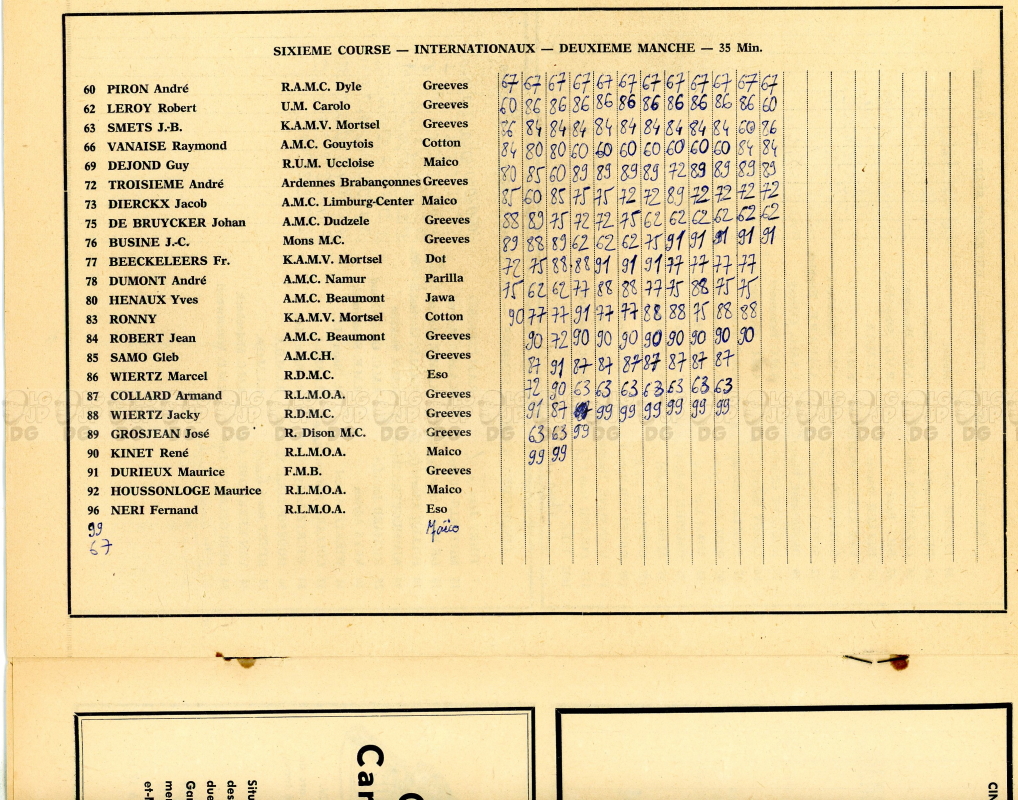 SIXIEME COURSE — INTERNATIONAUX — DEUXIEME MANCHE — 35 Min.
60 PIRON André R.A.M.C. Dyle Greeves
62 LEROY Robert U.M. Carolo Greeves
63 SMETS J.-B. K.A.M.V. Mortsel Greeves
66 VANAISE Raymond A.M.C. Gouytois Cotton
69 DEJOND Guy R.U.M. Uccloise Maico
72 TROISIEME André Ardennes Brabançonnes Greeves
73 DIERCKX Jacob A.M.C. Limburg-Center Maico
75 DE BRUYCKER Johan A.M.C. Dudzele Greeves
76 BUSINE J.-C. Mons M.C. Greeves
77 BEECKELEERS Fr. K.A.M.V. Mortsel Dot
78 DUMONT André A.M.C. Namur Parilla
80 HENAUX Yves A.M.C. Beaumont Jawa
83 RONNY K.A.M.V. Mortsel Cotton
84 ROBERT Jean A.M.C. Beaumont Greeves
85 SAMO Gleb A.M.C.H. Greeves
86 WIERTZ Marcel R.D.M.C. Eso
87 COLLARD Armand R.L.M.O.A. Greeves
88 WIERTZ Jacky R.D.M.C. Greeves
89 GROSJEAN José R. Dison M.C. Greeves
90 KINET René R.L.M.O.A. Maico
91 DURIEUX Maurice F.M.B. Greeves
92 HOUSSONLOGE Maurice R.L.M.O.A. Maico
96 NERI Fernand R.L.M.O.A. Eso
99 Maïco
67
67 67 67 67 67 67 67 67 67 67 67 67
60 86 86 86 86 86 86 86 86 86 86 60
86 84 84 84 84 84 84 84 84 84 60 86
84 80 80 60 60 60 60 60 60 60 84 84
80 85 60 89 89 89 89 72 89 89 89 89
85 60 85 75 75 72 72 89 72 72 72 72
88 89 75 72 72 75 62 62 62 62 62 62
89 88 89 62 62 62 75 91 91 91 91 91
72 75 88 88 91 91 91 77 77 77 77
75 62 62 77 88 88 77 75 88 75 75
90 77 77 91 77 77 88 88 75 88 88
90 72 90 90 90 90 90 90 90 90
87 91 87 87 87 87 87 87 87
72 90 63 63 63 63 63 63 63
91 87 99 99 99 99 99 99
63 63 99
99 99
Situ
des
due
Ga
me
et-
Car
CIN
DG